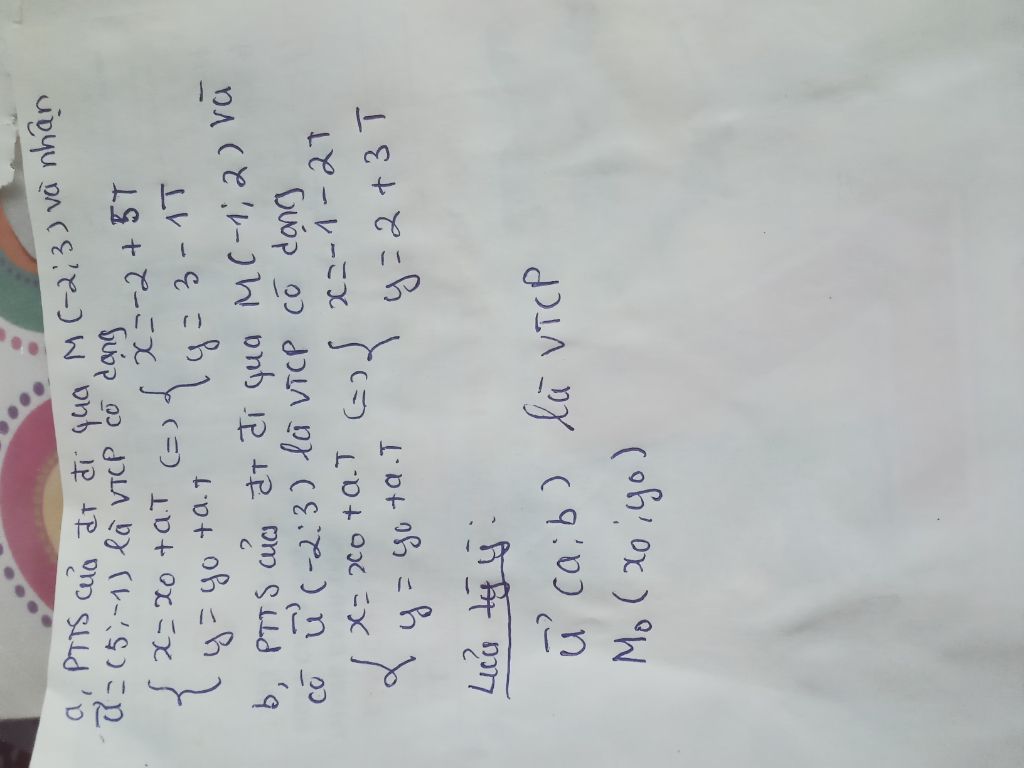 a, PTTS của đt đi qua M(-2;3) và nhận
u⃗=(5;-1) là VTCP có dạng
{ x=x0+a.T y=y0+a.T (=) { x=-2+5T y=3-1T
b, PTTS của đt đi qua M(-1;2) và
có u⃗(-2;3) là VTCP có dạng
{ x=x0+a.T y=y0+a.T (=) { x=-1-2T y=2+3T
Lưu ý:
u⃗(a;b) là VTCP
M0(x0;y0)